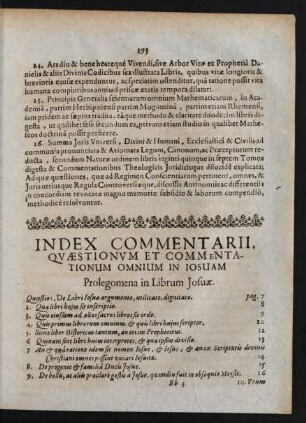 193
24. Ars diu & bene beateque Vivendi, sive Arbor Vitæ ex Prophetiâ Da-
nielis & aliis Divinis Codicibus sex illustrata Libris, quibus vitæ longioris &
brevioris causæ expenduntur, ac speciatim ostenditur, quâ ratione possit vita
humana compluribus annis ad priscæ ætatis tempora dilatari.
25. Principia Generalia scientiarum omnium Mathematicarum, in Aca-
demiâ, partim Herbipolensi partim Moguntinâ, partim etiam Rhemensi,
jam pridem ac jampis tradita, eâque methodo & claritate duodecim libris di-
gesta, ut quilibet sese secundum ea, privato etiam studio in qualibet Mathe-
seos doctrinâ possit perficere.
26. Summa Juris Vniversi, Divini & Humani, Ecclesiastici & Civilis ad
communia pronunciata & Axiomata Legum, Canonum, ac Præceptorum re-
ductis, secundum Naturæ ordinem libris viginti quinque in septem Tomos
digesta & Commentationibus Theologicis Juridicisque dilucidè explicata;
Ad quæ quæstiones, quæ ad Regimen Conscientiarum pertinent, omnes, &
Juris utriusque Regulæ Controversiæque, discussis Antinomiis ac differentiis
in concordiam revocatæ magno memoriæ subsidio & laborum compendio,
methodicè resolvuntur.
INDEX COMMENTARII,
QVÆSTIONVM ET COMMENTA-
TIONUM OMNIUM IN IOSUAM
Prolegomena in Librum Josuæ.
Quæstio 1. De Libri Iosuæ argumento, utilitate, dignitate. pag. 7
2. Qua libri hujus sit inscriptio. 8
3. Quis eiusdam ad alios sacros libros sit ordo. 9
4. Quis primus librorum omnium, & quis libri hujus scriptor. 10
5. Sitne liber Historicus tantum, an etiam Propheticus. 12
6. Quinam sint libri huius interpretes, & quæ ipsius divisio. 13
7. An & quâ ratione idem sit nomen Iosue, & Iesus, & an ex Scripturis divinis
Christiani omnes possint vocari Iesuitæ. 14
8. De progenie & familiâ Ducis Josue. 15
9. De bello, ac aliis præclarè gestis à Josue, quamdiu fuit in obsequio Moysis. 16
Bb 3 10. Vtrum